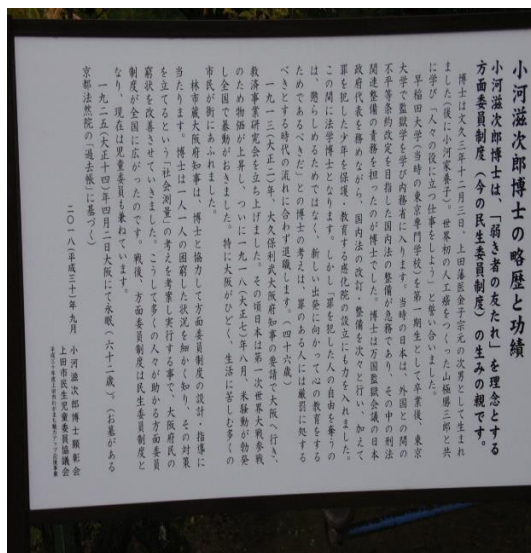 小河滋次郎博士の略歴と功績
小河滋次郎博士は、「弱き者の友たれ」を理念とする
方面委員制度（今の民生委員制度）の生みの親です。
博士は文久三年十二月三日、上田藩医金子宗元の次男として生まれ
ました（後に小河家養子）。世界初の人工癌をつくった山極勝三郎と共
に学び「人々の役に立つ仕事をしよう」と誓い合いました。
早稲田大学（当時の東京専門学校）を第一期生として卒業後、東京
大学で監獄学を学び内務省に入ります。当時の日本は、外国との間の
不平等条約改定を目指した国内法の整備が急務であり、その中の刑法
関連整備の責務を担ったのが博士でした。博士は万国監獄会議の日本
政府代表を務めながら、国内法の改訂・整備を次々と行い、加えて
罪を犯した少年を保護・教育する感化院の設立にも力を入れました。
この間に法学博士となります。しかし「罪を犯した人の自由を奪うの
は、懲らしめるためではなく、新しい出発に向かって心の教育をする
ためであるべきだ」との博士の考えは、罪のある人には厳罰に処する
べきとする時代の流れに合わず退職します。（四十六歳）
一九一三（大正二）年、大久保利武大阪府知事の要請で大阪へ行き、
救済事業研究会を立ち上げました。その頃日本は第一次世界大戦参戦
のため物価が上昇し、ついに一九一八（大正七）年八月、米騒動が勃発
し全国で暴動がおきました。特に大阪がひどく、生活に苦しむ多くの
市民が街にあふれました。
林市蔵大阪府知事は、博士と協力して方面委員制度の設計・指導に
当たります。博士は一人一人の困窮した状況を細かく知り、その対策
を立てるという「社会測量」の考えを考案し実行する事で、大阪府民の
窮状を改善させていきました。こうして多くの人々が助かる方面委員
制度が全国に広がったのです。戦後、方面委員制度は民生委員制度と
なり、現在は児童委員も兼ねています。
一九二五（大正十四）年四月二日大阪にて永眠（六十二歳）。（お墓がある
京都法然院の「過去帳」に基づく）
二〇一八（平成三十）年九月　小河滋次郎博士顕彰会
上田市民生児童委員協議会